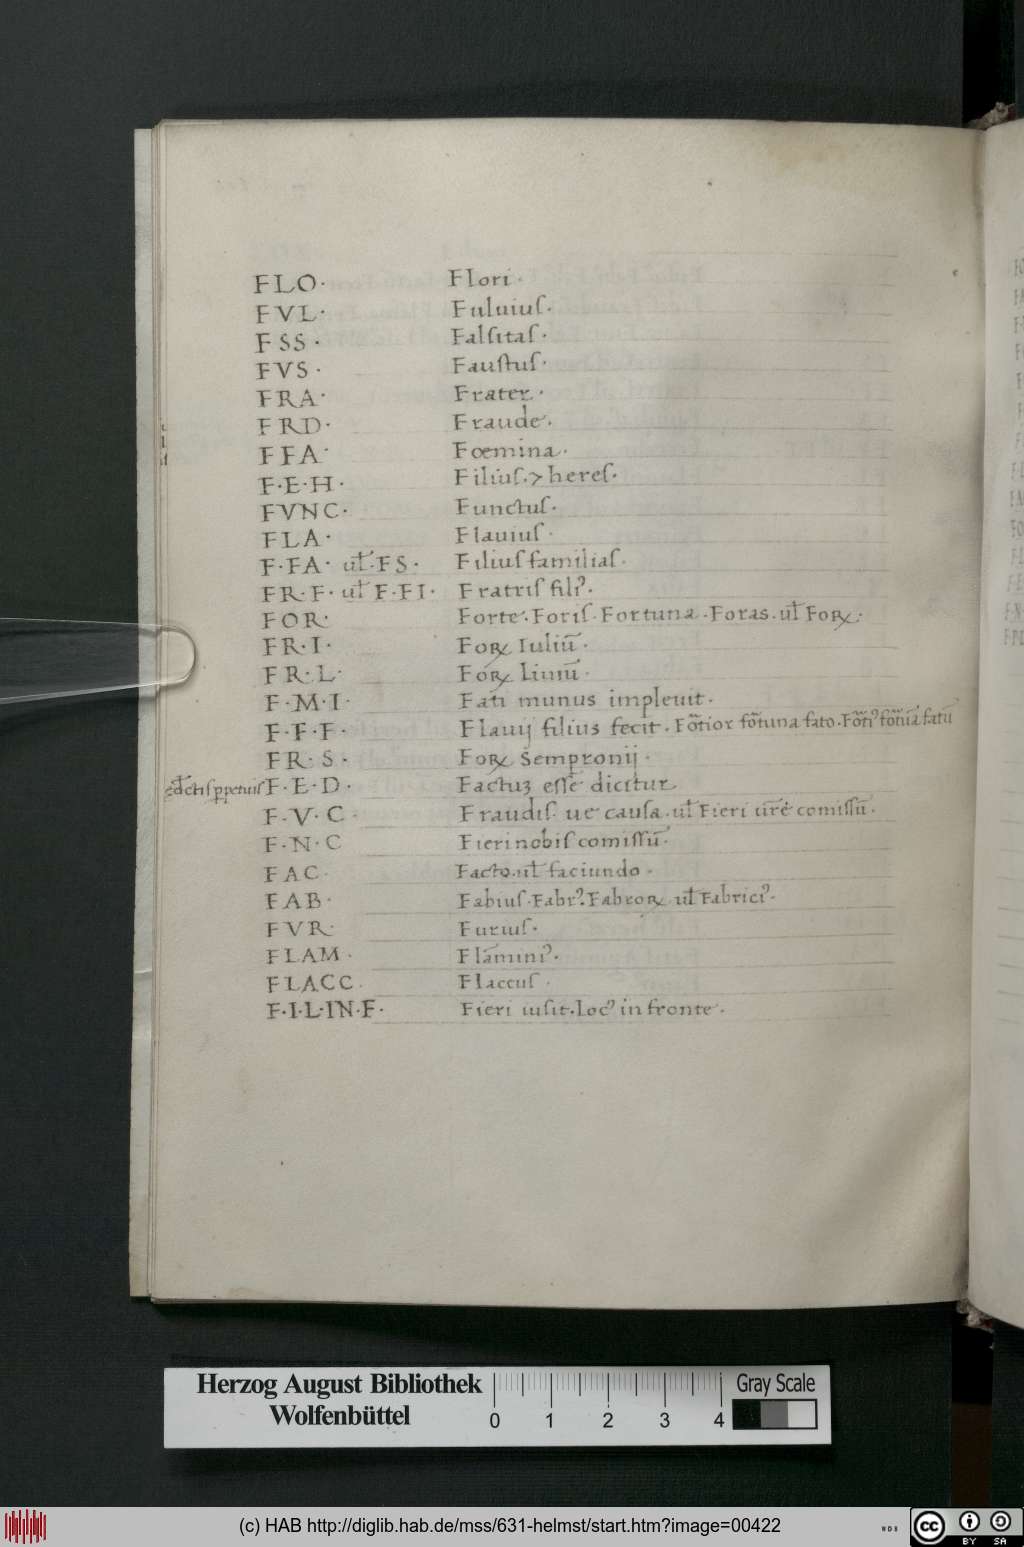 FLO· Flori·
FVL· Fuluiuſ·
FSS· Falſitaſ·
FVS· Fauſtuſ·
FRA· Frater·
FRD· Fraude·
FFA· Foemina·
F·E·H· Filiuſ· hereſ·
FVNC· Functuſ·
FLA· Flauiuſ·
F·FA· ul̄·FS· Filiuſ familiaſ·
FR·F· ul̄ F·FI· Fratriſ filꝰ·
FOR· Forte·Foriſ·Fortuna·Foras·ul̄ Foꝝ·
FR·I· Foꝝ Iuliū·
FR·L· Foꝝ Liuiū·
F·M·I· Fati munus impleuit·
F·F·F· Flauij filius fecit· fato· fatū
FR·S· Foꝝ Sempronij·
F·E·D· Factuꝫ eſſe dicitur
F·V·C· Fraudiſ· ue cauſa·ul̄ Fieri comiſſū·
F·N·C Fieri nobiſ comiſſū·
FAC· Facto·ul̄ faciundo·
FAB· Fabiuſ·Fabrꝰ·Fabroꝝ ul̄ Fabriciꝰ·
FVR· Furiuſ·
FLAM· Flāminiꝰ·
FLACC· Flaccuſ·
F·I·L·IN·F· Fieri iuſit·Locꝰ in fronte·
Herzog August Bibliothek
Wolfenbüttel
0 1 2 3 4
Gray Scale
(c) HAB http://diglib.hab.de/mss/631-helmst/start.htm?image=00422
WDB
cc BY SA